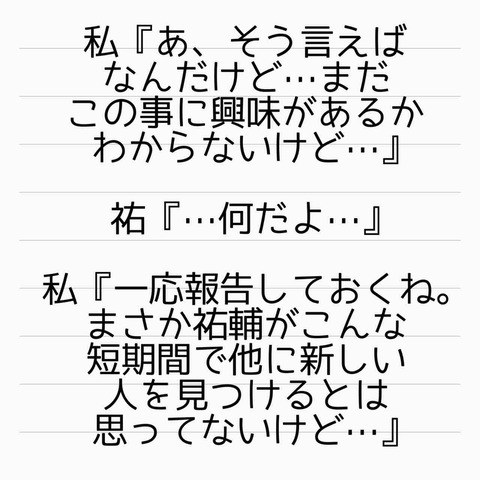 私『あ、そう言えば
なんだけど…まだ
この事に興味があるか
わからないけど…』
祐『…何だよ…』
私『一応報告しておくね。
まさか祐輔がこんな
短期間で他に新しい
人を見つけるとは
思ってないけど…』